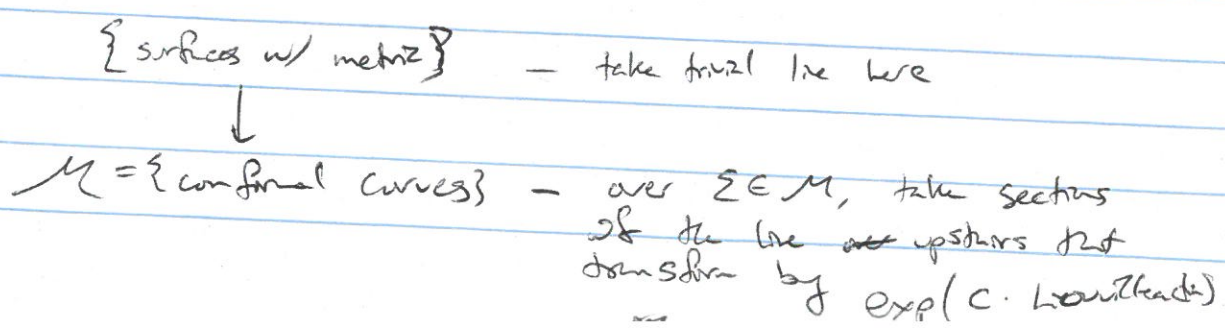 {surfaces w/ metric} — take trivial line here
↓
M = {conformal curves} — over Σ ∈ M, take sections
of the line upstairs that
transform by exp(c · Liouville action)